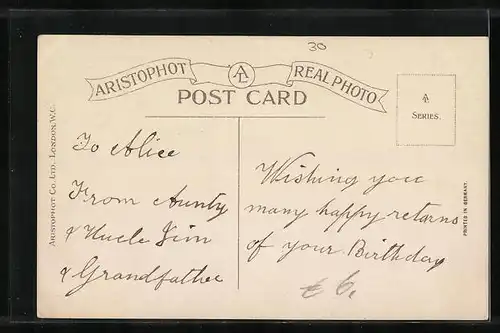 30
ARISTOPHOT AL REAL PHOTO
POST CARD
A
SERIES.
ARISTOPHOT CO. LTD., LONDON, W.C.
To Alice
From Aunty
& Uncle Jim
& Grandfather
Wishing you
many happy returns
of your Birthday
PRINTED IN GERMANY.